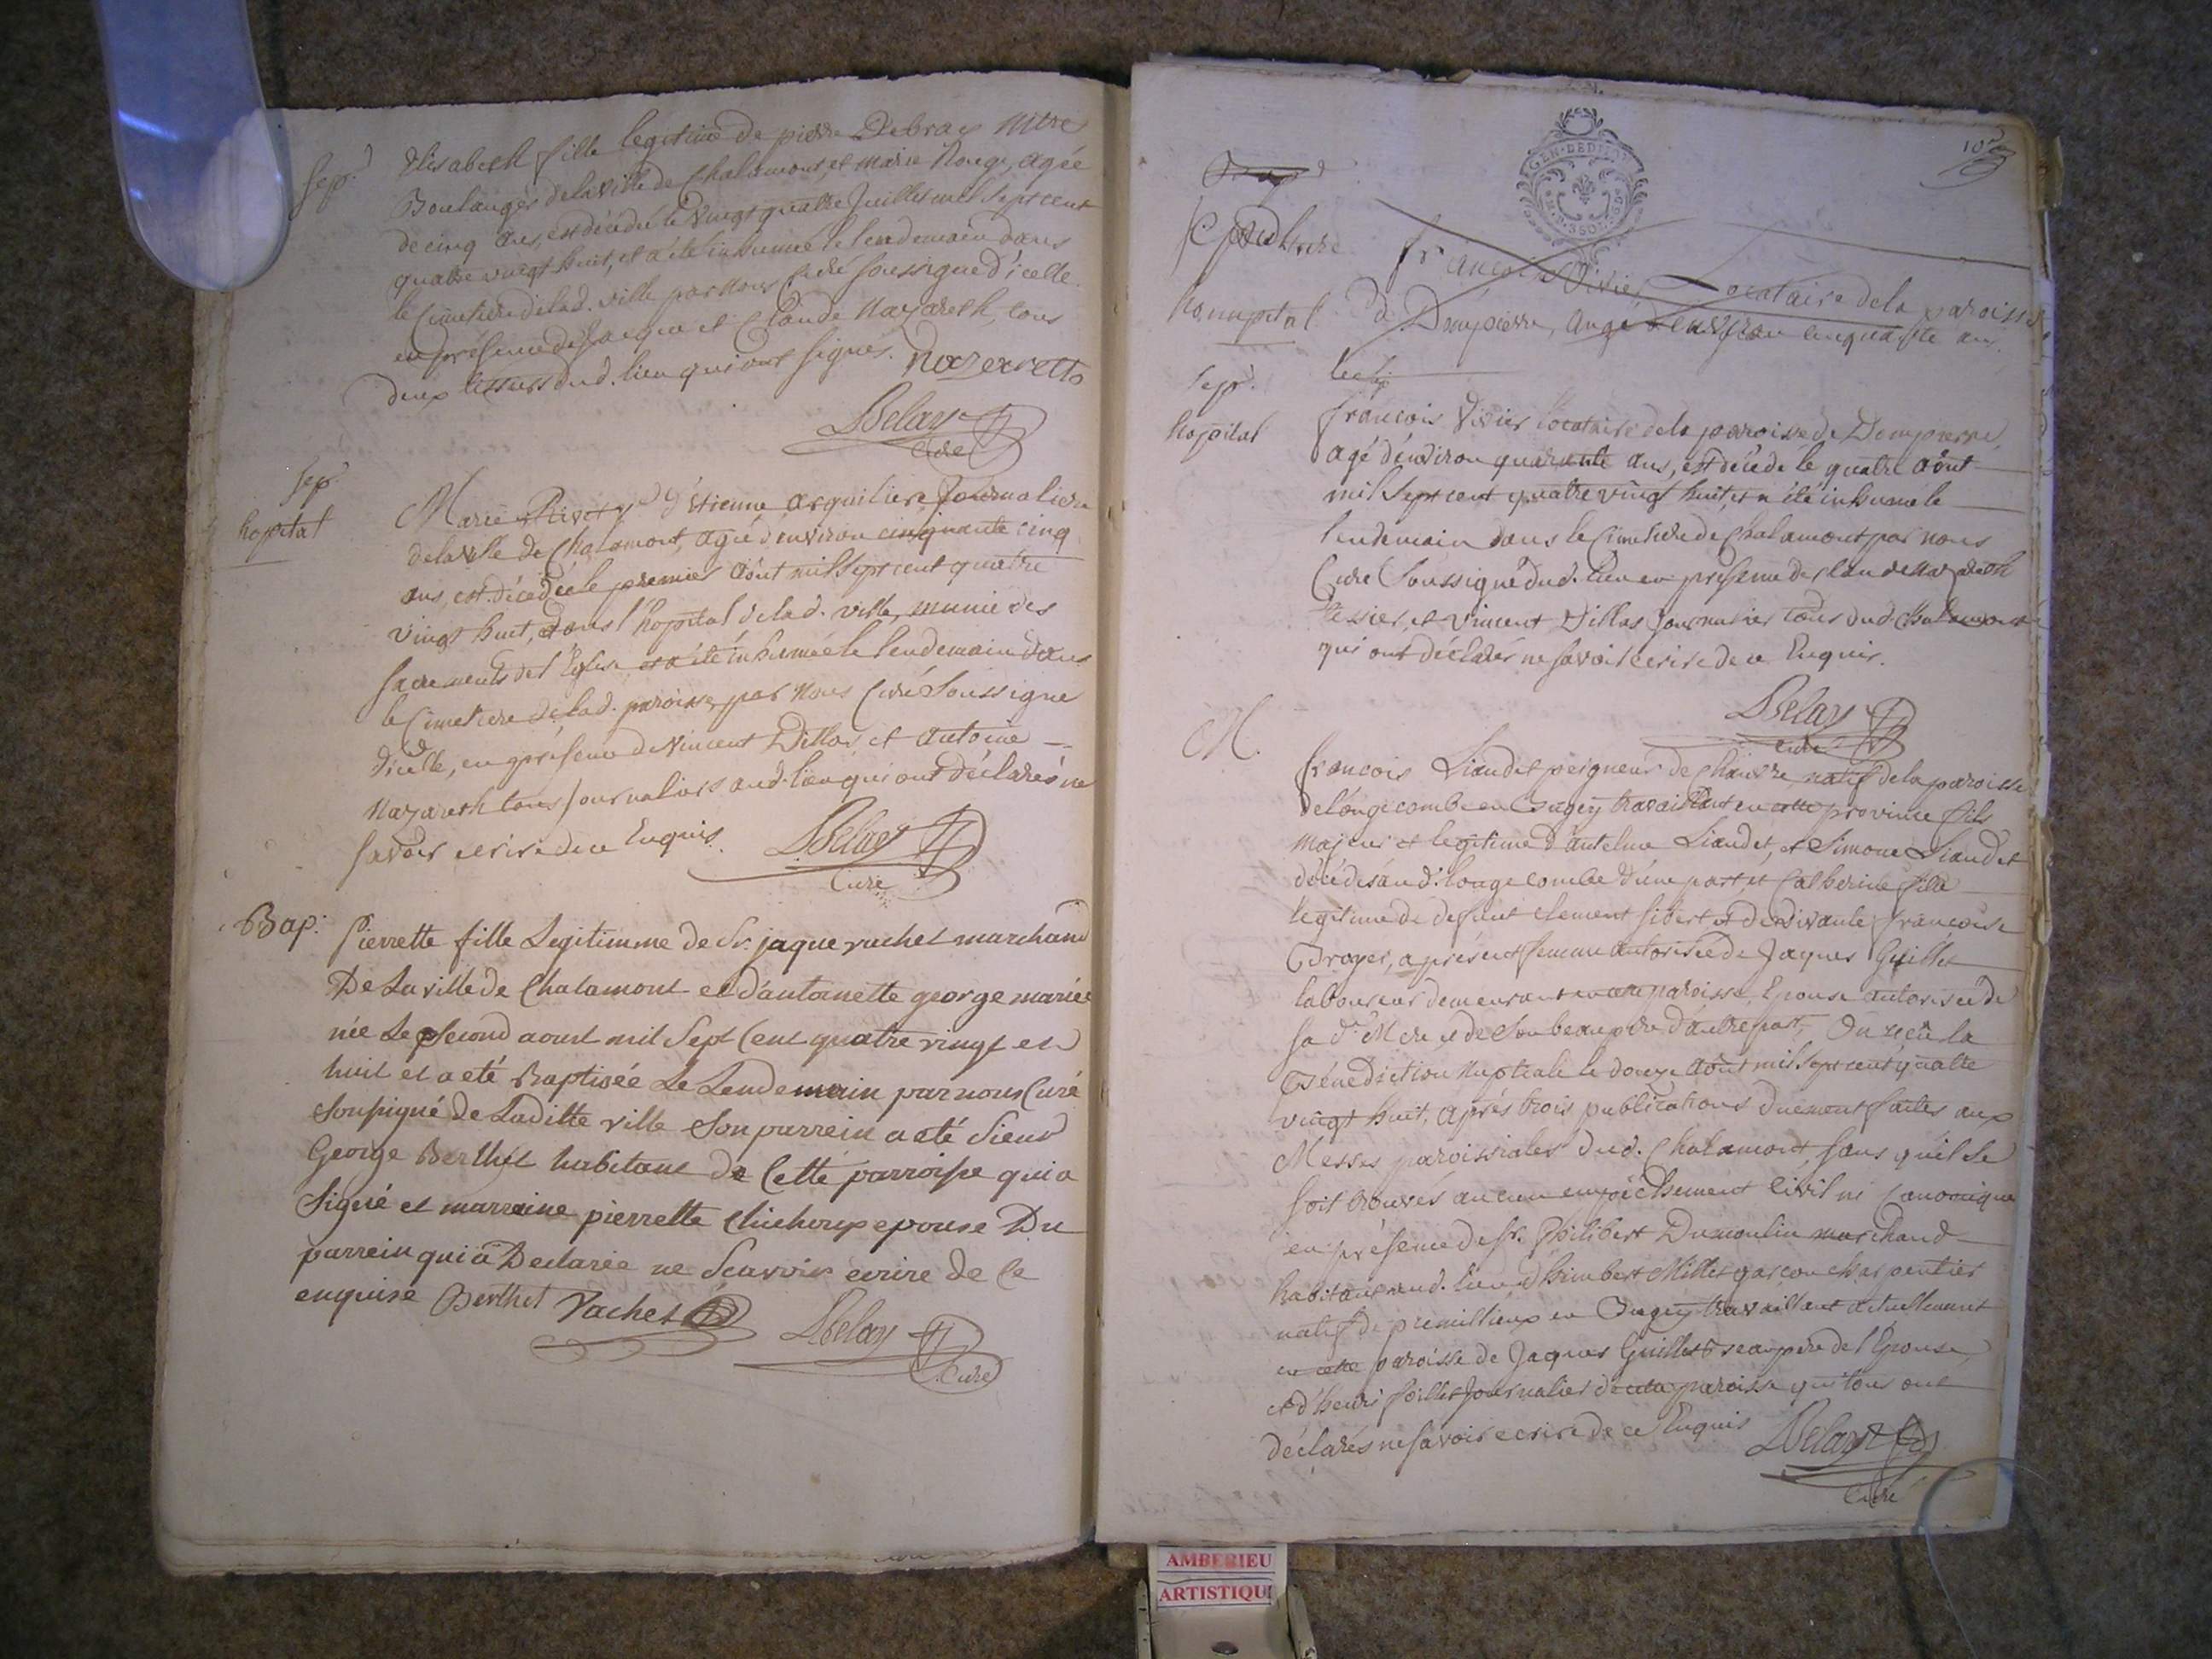 Sep.
Elisabeth fille legitime de pierre Debray Mtre
Boulanger delaville de Chalamont, et marie Rouge, agée
de cinq ans, est décédée le vingt quatre Juillet mil sept cent
quatre vingt huit, et a été inhumée le lendemain dans
le Cimetiere delad. ville par nous Curé soussigné d'icelle
en présence de Jacque et Claude Nazareth, tous
deux tessiers dud. lieu qui ont signés. Nazarette
Belay
Curé
Sep.
hopital
Marie Rivet ve d'étienne arquiliere Journaliere
delaville de Chalamont, agée d'environ cinquante cinq
ans, est décédée le premier août mil sept cent quatre
vingt huit, dans l'hopital delad. ville, munie des
sacrements de l'Eglise et a été inhumée le lendemain dans
le Cimetiere delad. paroisse, par nous Curé Soussigné
d'icelle, en présence de Vincent Dillas, et antoine
Nazareth tous Journaliers aud. lieu qui ont déclarés ne
savoir ecrire de ce Enquis. Belay
Curé
Bap:
Pierrette fille Legitimme de Sr. jaque vachet marchand
De La ville de Chalamont et d'antoinette george mariée
née Le second aoust mil Sept Cent quatre vingt et
huit et a eté Baptisée Le Lendemain par nous Curé
Soussigné de Laditte ville Son parrein a eté Sieur
George Berthet habitant de Cette parroisse qui a
Signé et marraine pierrette Chichoux epouse Du
parrein qui a Declarée ne Scavoir ecrire de Ce
enquise Berthet Vachet Belay
Curé
GEN. DE DIJON
10
Sepulture
francois Vivier Locataire dela paroisse
hopital
de Dompierre, agé d'environ cinquante ans
Sep.
hopital
francois Vivier locataire dela paroisse de Dompierre,
agé d'environ quarante ans, est décédé le quatre août
mil Sept cent quatre vingt huit, et a été inhumé le
lendemain dans le Cimetiere de Chalamont par nous
Curé Soussigné dud. lieu en présence de Claude Nazareth
tessier, et Vincent Dillas Journalier tous dud. Chalamont
qui ont déclarés ne savoir ecrire de ce Enquis.
Belay
Curé
M.
francois Liaudet peigneur de chanvre natif dela paroisse
de longecombe en Bugey travaillant en cette province fils
majeur et legitime d'antelme Liaudet, et Simone Liaudet
décédés aud. longecombe d'une part, et Catherine fille
legitime de defunt clement sibert et de vivante francoise
Broyer, a présent femme autorisée de Jaques Guillet
laboureur demeurant en cette paroisse, Epouse autorisée de
sa de. Mere et de Son beaupere d'autre part, On reçu la
Bénédiction Nuptiale le douze août mil sept cent quatre
vingt huit, après trois publications duement faites aux
Messes paroissiales dud. Chalamont, sans qu'il se
soit trouvés aucun empéchement civil ni canonique
en présence de sr. Philibert Dumoulin marchand
habitant aud. lieu, d'himbert Millet garcon charpentier
natif de premillieux en Bugey travaillant actuellement
en cette paroisse de Jaques Guillet beaupere de l'Epouse,
et d'henri foillet Journalier de cette paroisse qui tous ont
déclarés ne savoir ecrire de ce Enquis Belay
Curé
AMBERIEU
ARTISTIQU